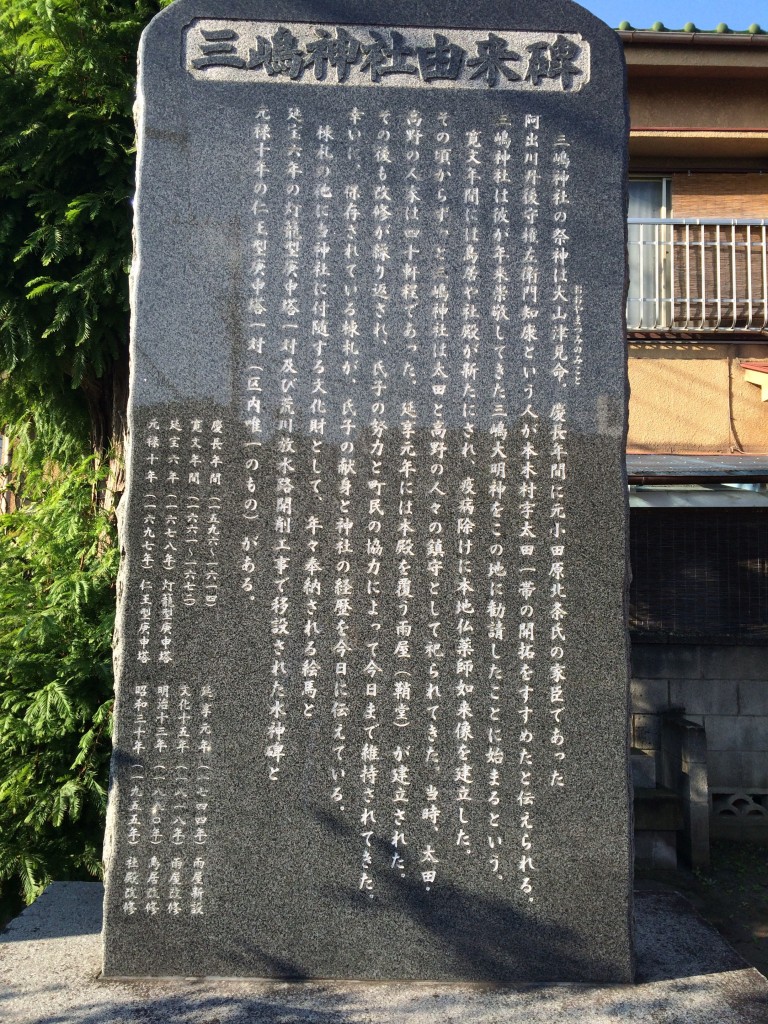 三嶋神社由来碑
三嶋神社の祭神は大山津見命、慶長年間に元小田原北条氏の家臣であった
おおやまつみのみこと
阿出川丹後守権左衛門知康という人が本木村字太田一帯の開拓をすすめたと伝えられる。
三嶋神社は彼が年来崇敬してきた三嶋大明神をこの地に勧請したことに始まるという。
寛文年間には鳥居や社殿が新たにされ、疫病除けに本地仏薬師如来像を建立した。
その頃からずっと三嶋神社は太田と高野の人々の鎮守として祀られてきた。当時、太田・
高野の人家は四十軒程であった。延享元年には本殿を覆う雨屋（鞘堂）が建立された。
その後も改修が繰り返され、氏子の努力と町民の協力によって今日まで維持されてきた。
幸いに、保存されている棟札が、氏子の献身と神社の経歴を今日に伝えている。
棟札の他に当神社に付随する文化財として、年々奉納される絵馬と
延宝六年の灯籠型庚申塔一対及び荒川放水路開削工事で移設された水神碑と
元禄十年の仁王型庚申塔一対（区内唯一のもの）がある。
慶長年間（一五九六～一六一四）
寛文年間（一六六一～一六七二）
延宝六年（一六七八年）灯籠型庚申塔
元禄十年（一六九七年）仁王型庚申塔
延享元年（一七四四年）雨屋新設
文化十五年（一八一八年）雨屋改修
明治十三年（一八八〇年）鳥居改修
昭和三十年（一九五五年）社殿改修